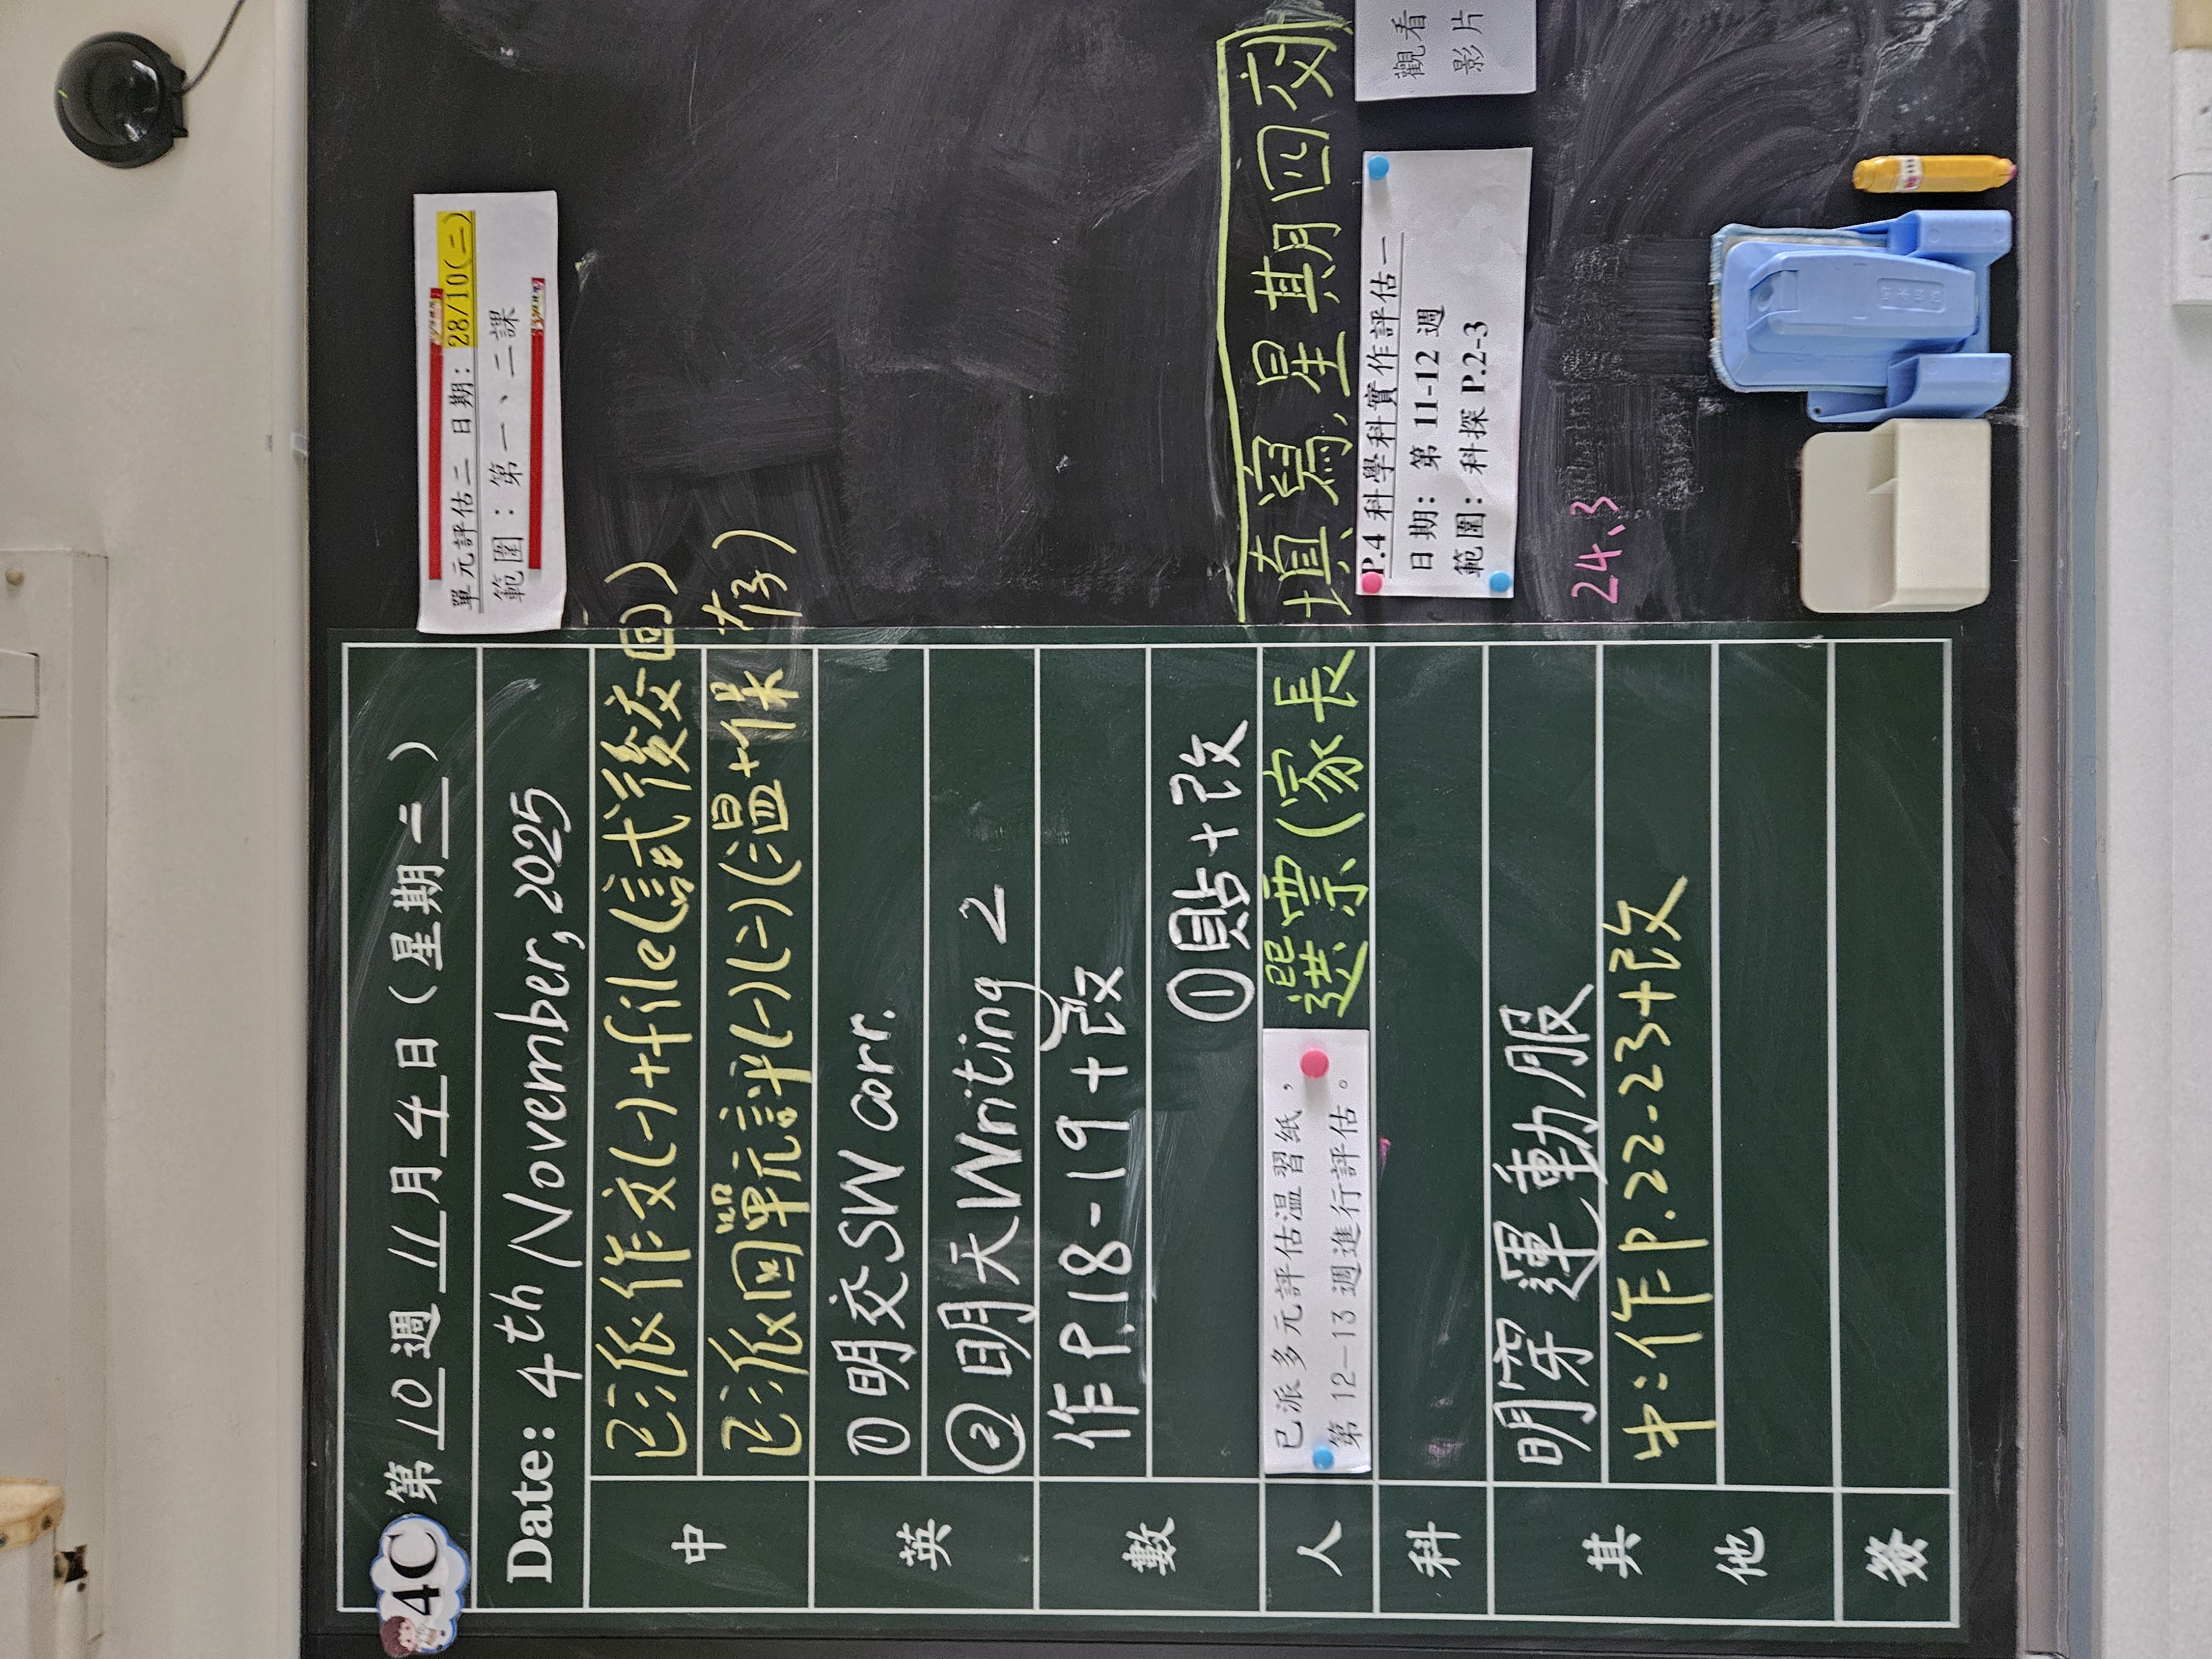 4C 第 10 週 11 月 4 日 (星期 二)
Date: 4th November, 2025
中
已派作文(一)+file(試後交回)
已派回單元評(一)(二)(溫+保存)
英
①明交SW corr.
②明天Writing 2
數
作P.18-19+改
①貼+改
人
已派多元評估溫習紙，
第 12-13 週進行評估。
選票(家長填寫,星期四交)
科
其他
明穿運動服
中:作P.22-23+改
簽
單元評估二 日期: 28/10(二)
範圍:第一、二課
P.4 科學科實作評估一
日期: 第 11-12 週
範圍: 科探 P.2-3
觀看
影片
24、3